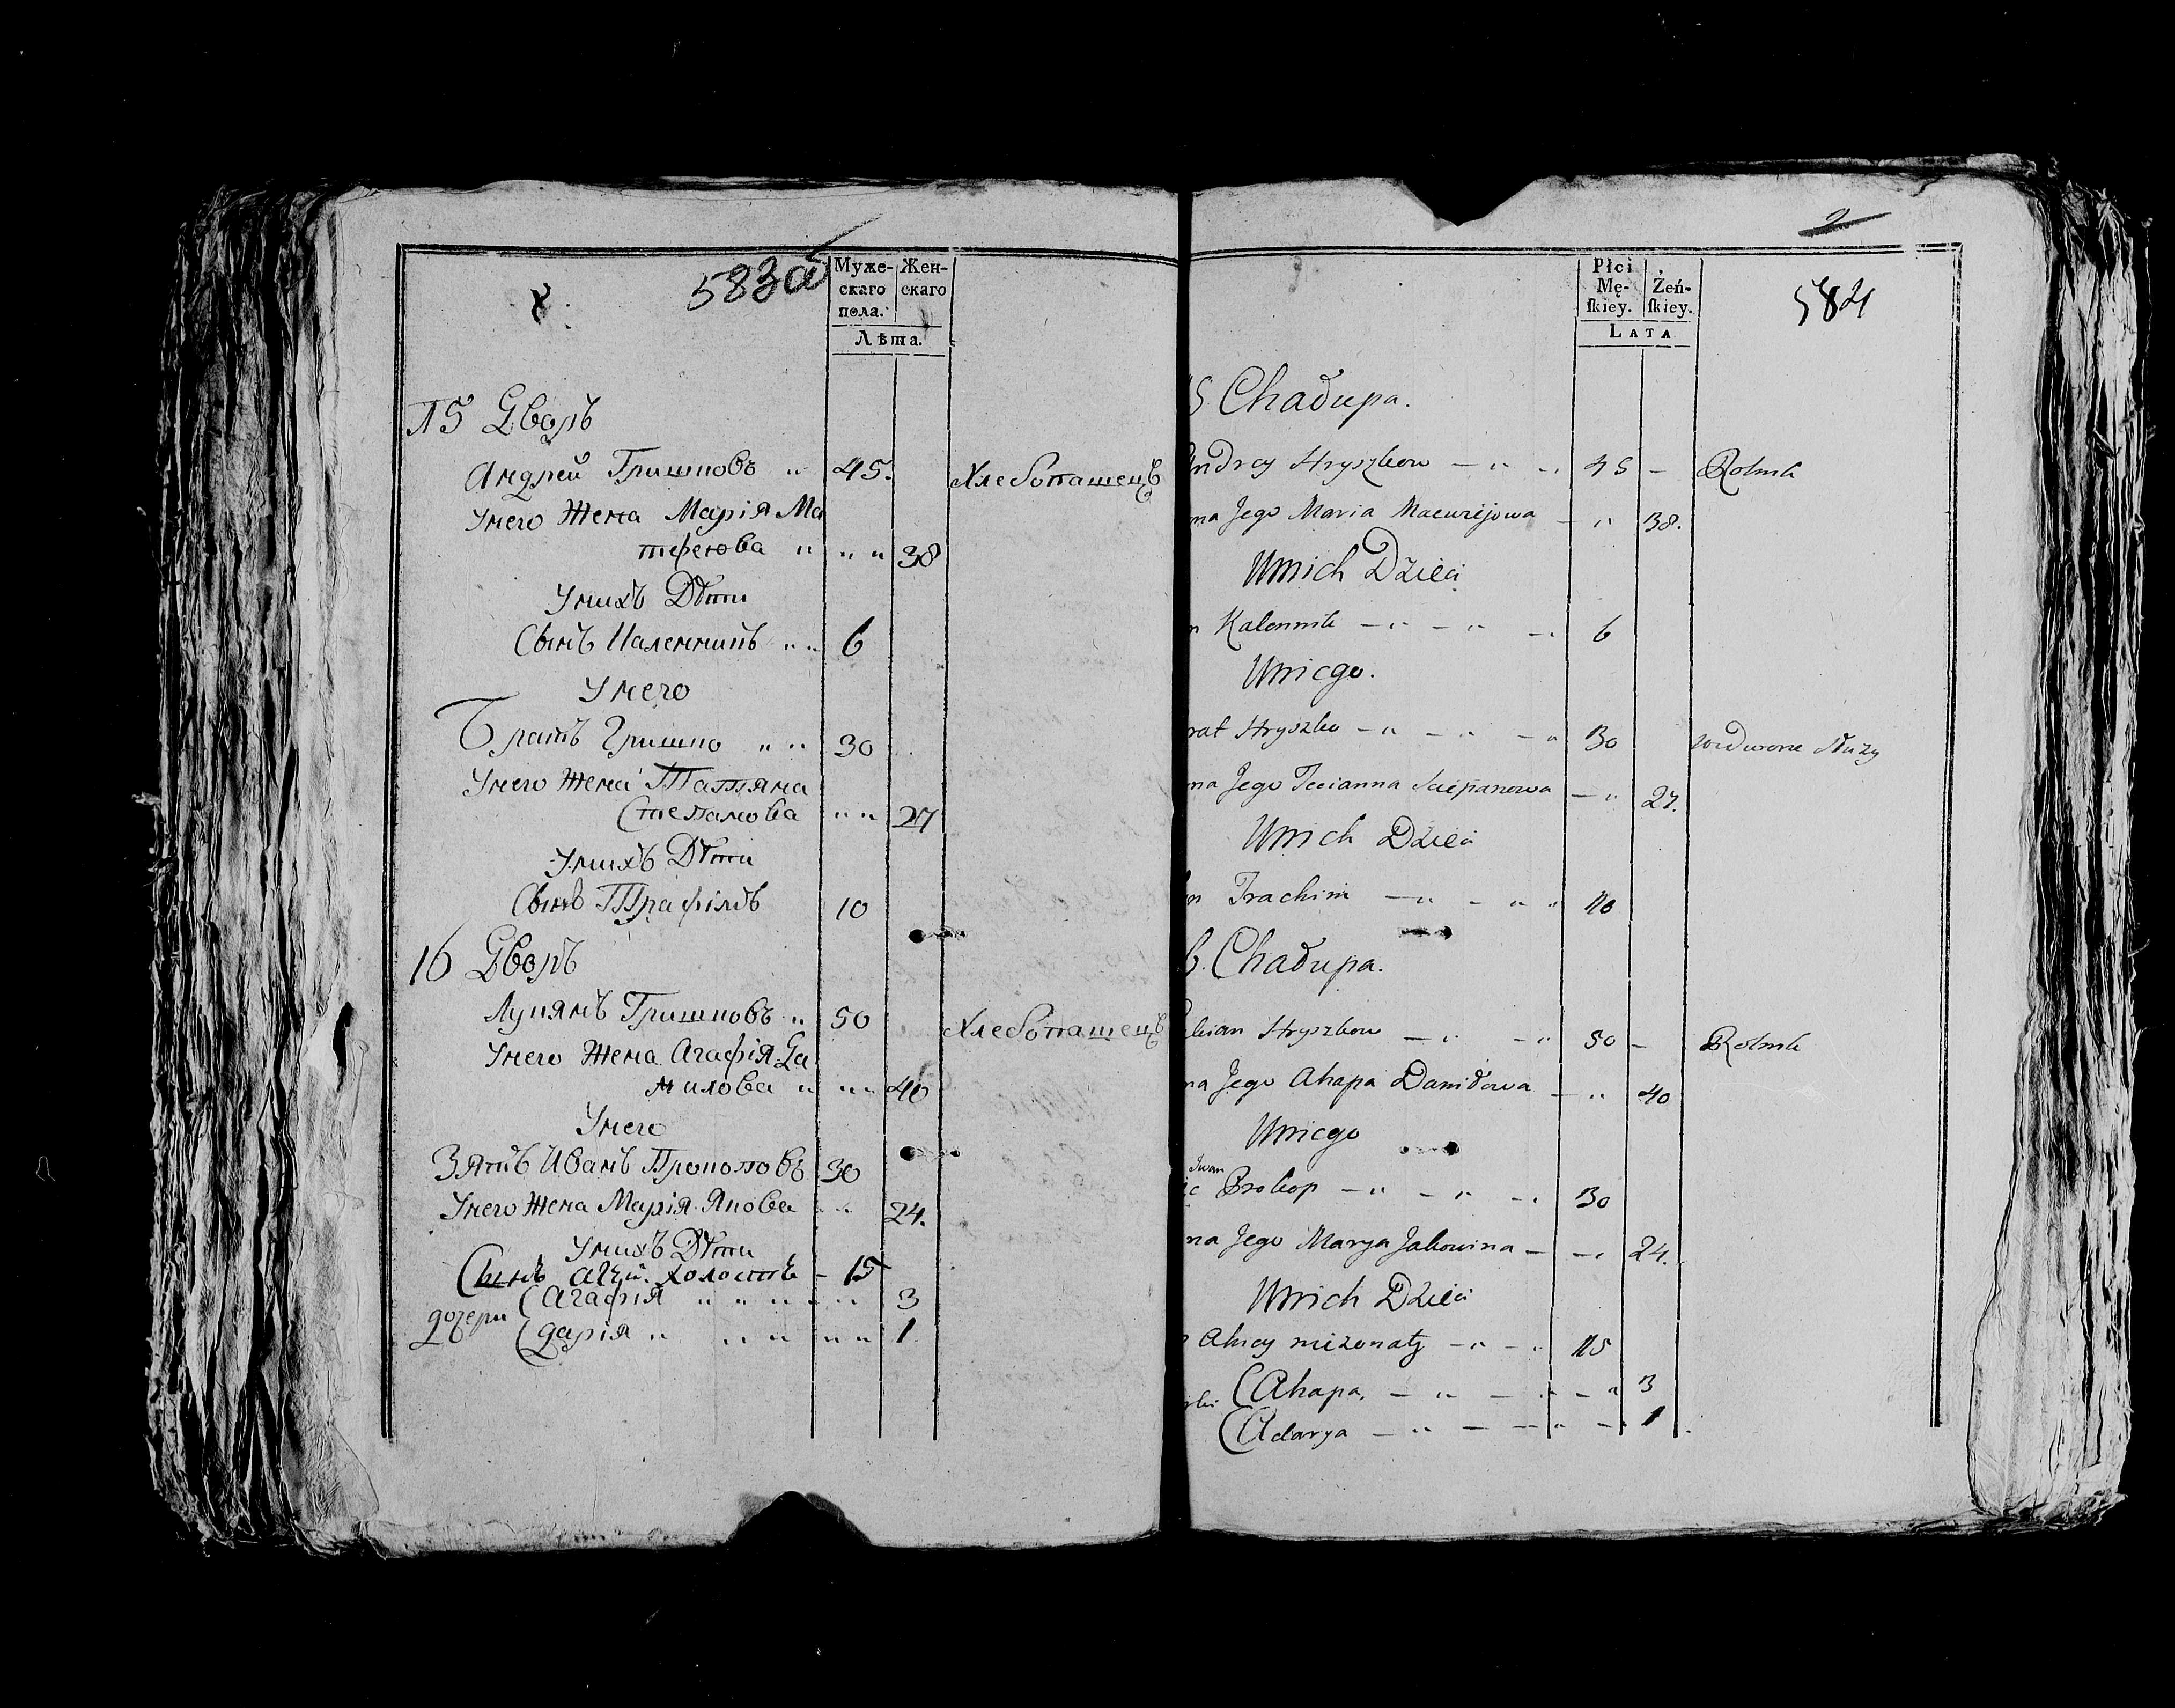 583об
Муже-
скаго
пола.
Жен-
скаго
Лѣта.
15 Дворъ
Андрей Гришковъ 45. Хлебопашецъ
Унего Жена Марія Ма
тфеюва 38
Унихъ Дѣти
Сынъ Каленникъ 6
Унего
Братъ Гришко 30
Унего Жена Татяна
Степанова 27
Унихъ Дѣти
Сынъ Трафімъ 10
16 Дворъ
Лукянъ Гришковъ 50 Хлебопашецъ
Унего Жена Агафія Да
нилова 40
Унего
Зять Иванъ Прокоповъ 30
Унего Жена Марія Якова 24.
Унихъ Дѣти
Сынъ Агѣй холостъ - 15
дочери (Агафія 3
(дарія 1.
2
584
Płci
Mę-
ſkiey.
Żeń-
ſkiey.
LATA
5 Chałupa.
Andrey Hryszkow 45 - Rolnik
na Jego Maria Maciurejowa 38.
Unich Dzieci
n Kalennik 6
Uniego.
rat Hryszko 30 wedworze służy
na Jego Tecianna Sciepanowa 27.
Unich Dzieci
n Trachim 10
6. Chałupa.
ukian Hryszkow 50 - Rolnik
na Jego Ahapa Daniłowa 40
Uniego
Iwan
ic Prokop 30
na Jego Marya Jakowina 24.
Unich Dzieci
Ahiey nieżonaty 15
rki (Ahapa. 3
(Adarya 1